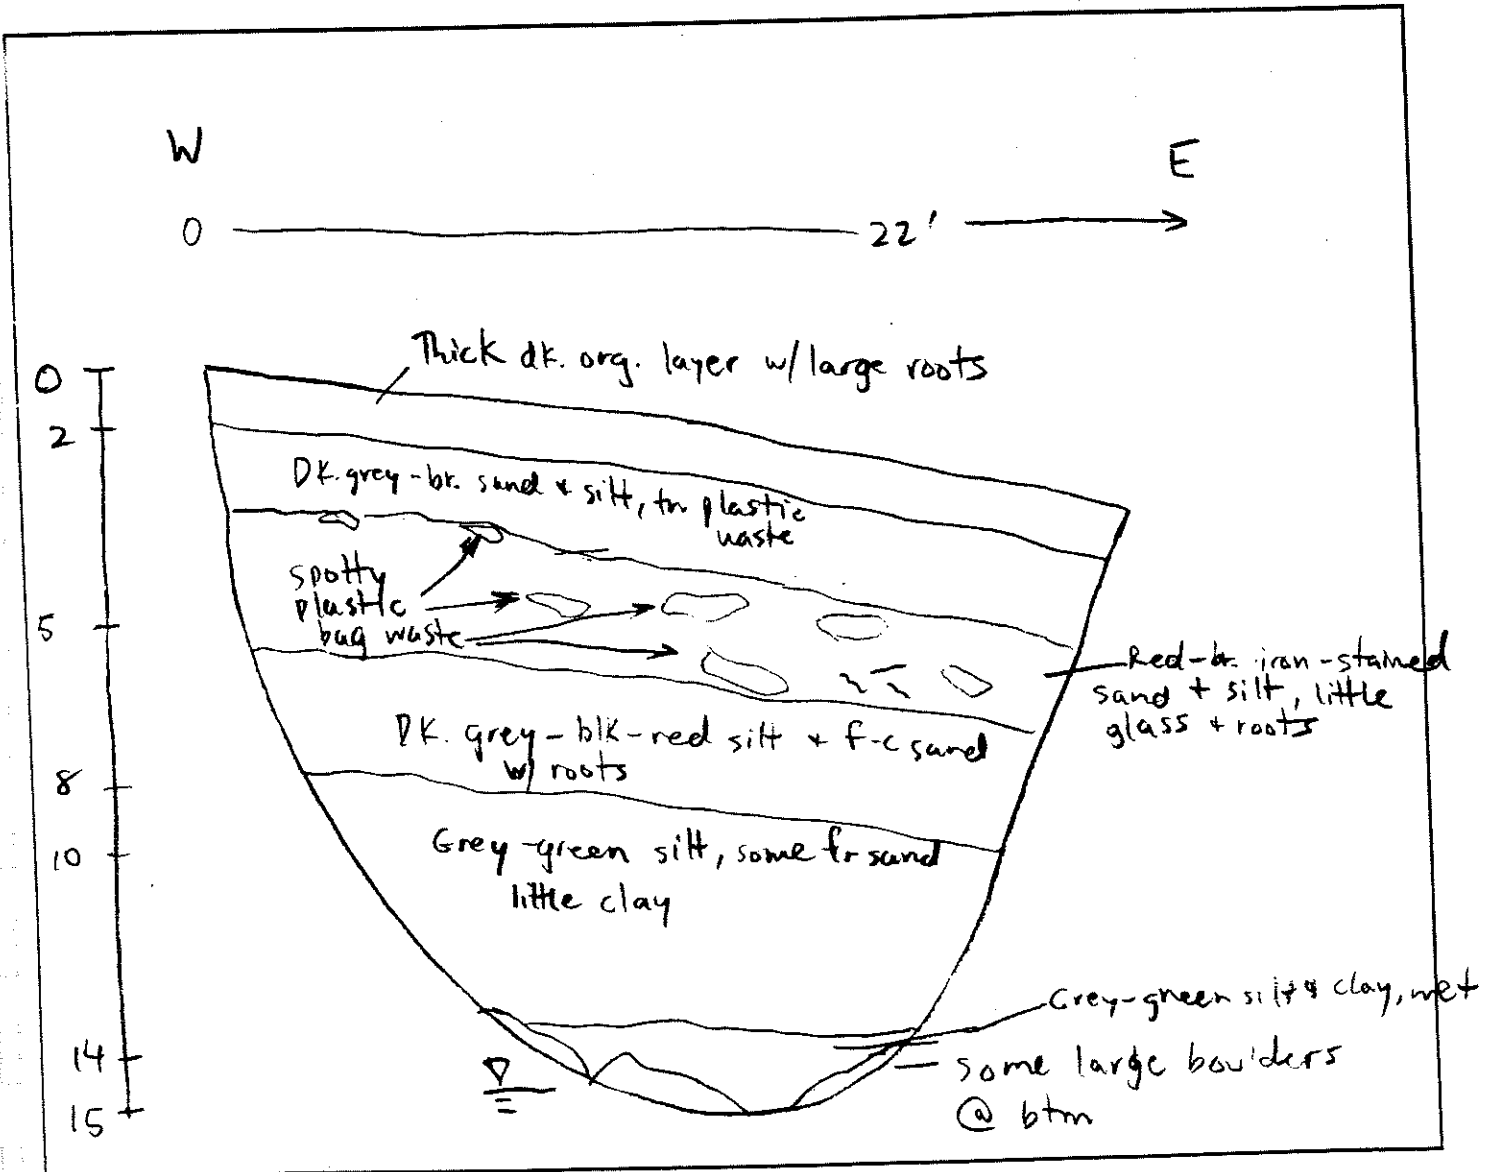 W
E
0
22'
Thick dk. org. layer w/ large roots
0
2
DK. grey-br. sand & silt, tr plastic
waste
spotty
plastic
bag waste
5
Red-br. iron-stained
sand + silt, little
glass + roots
DK. grey-blk-red silt & f-c sand
w/ roots
8
Grey-green silt, some fr sand
little clay
10
Grey-green silt & clay, wet
14
some large boulders
@ btm
15